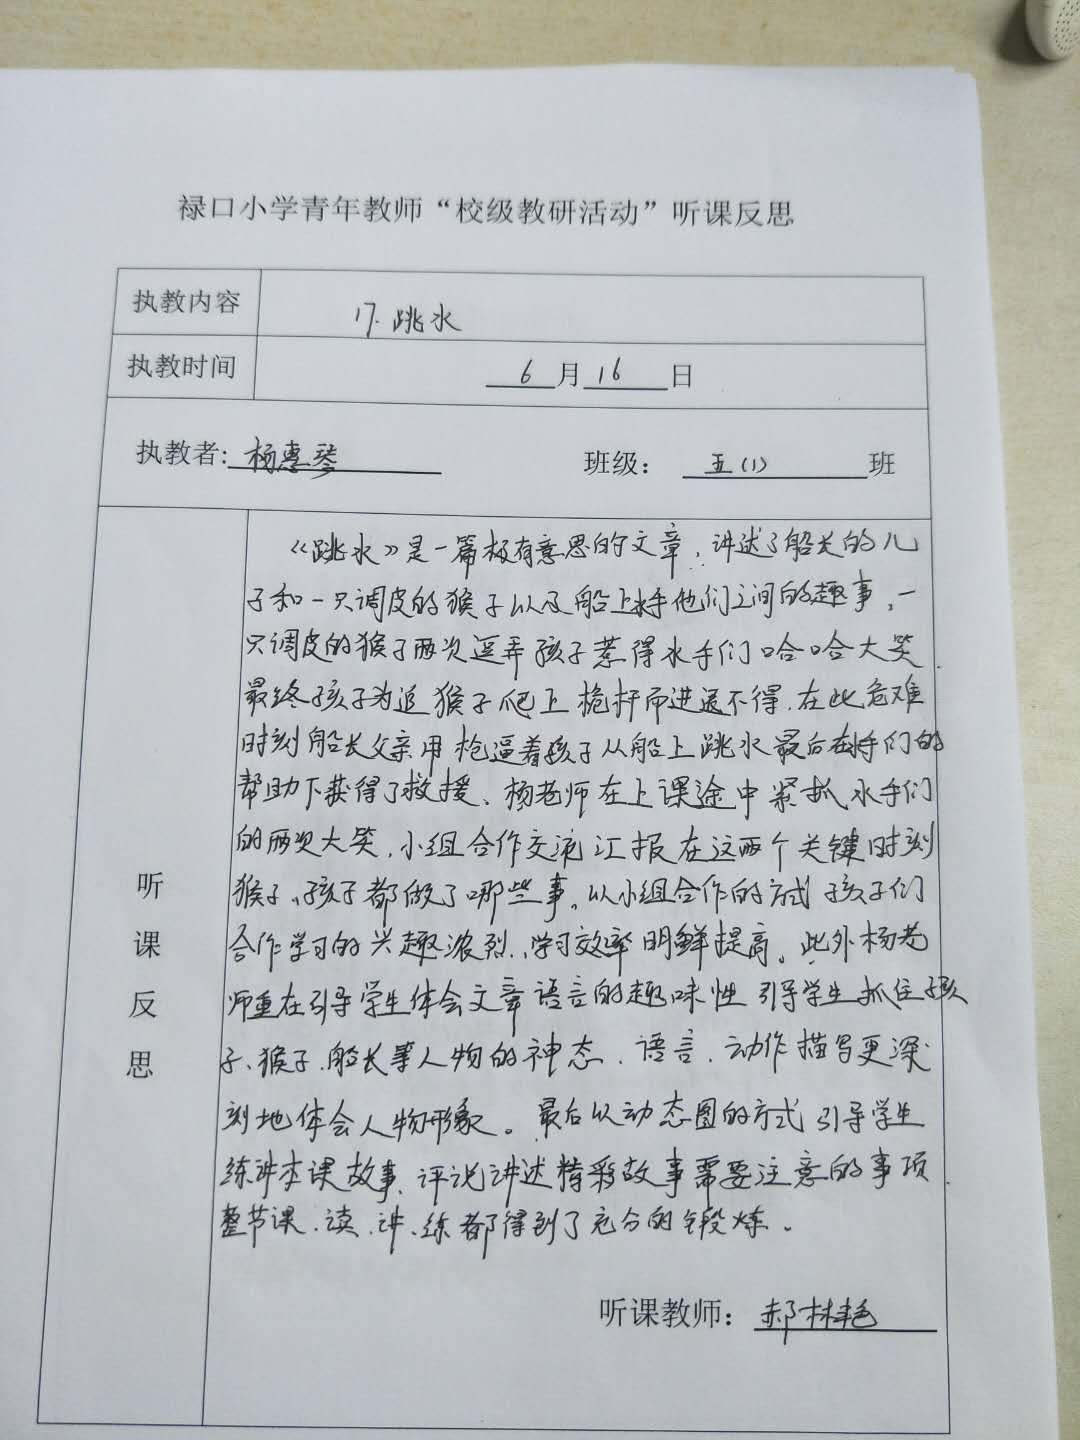 禄口小学青年教师“校级教研活动”听课反思
执教内容 17.跳水
执教时间 6月16日
执教者:杨惠琴 班级: 五(1)班
听课反思
《跳水》是一篇极有意思的文章,讲述了船长的儿
子和一只调皮的猴子以及船上水手他们之间的趣事,一
只调皮的猴子两次逗弄孩子惹得水手们哈哈大笑.
最终孩子为追猴子爬上桅杆而进退不得.在此危难
时刻船长父亲用枪逼着孩子从船上跳水最后在水手们的
帮助下获得了救援、杨老师在上课途中紧抓水手们
的两次大笑,小组合作交流汇报在这两个关键时刻
猴子、孩子都做了哪些事。以小组合作的方式孩子们
合作学习的兴趣浓烈、学习效率明鲜提高。此外杨老
师重在引导学生体会文章语言的趣味性引导学生抓住孩
子、猴子、船长等人物的神态、语言、动作描写更深
刻地体会人物形象。最后以动态图的方式引导学生
练讲本课故事、评说讲述精彩故事需要注意的事项.
整节课、读、讲、练都得到了充分的锻炼。
听课教师:郝林艳